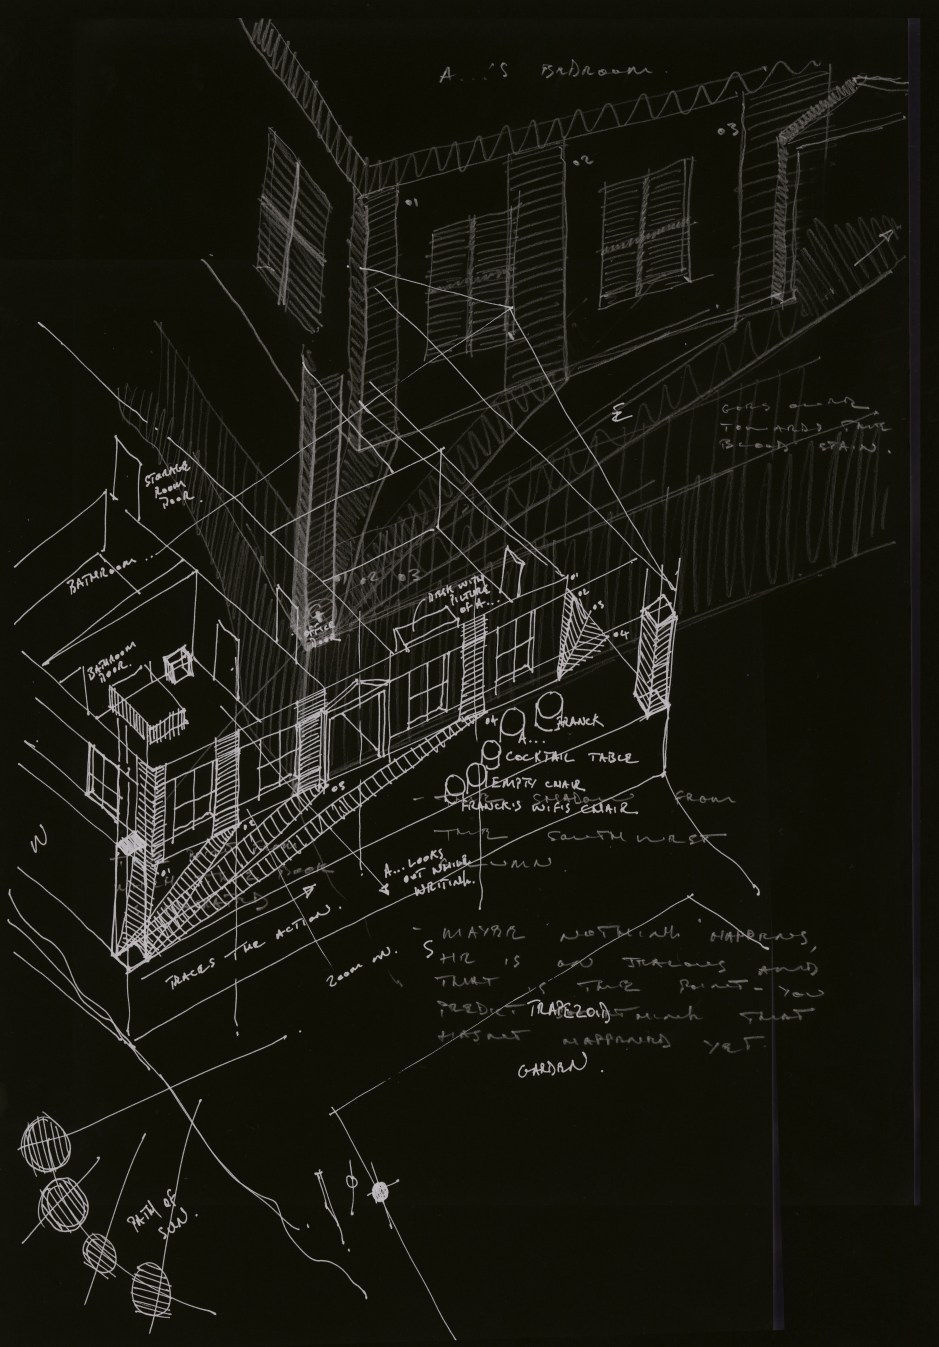 A...'S BEDROOM.
01
02
03
E
GOES OVER
TOWARDS THE
BLOOD STAIN.
STORAGE
ROOM
DOOR.
BATHROOM...
BATHROOM
DOOR.
01 02 03
OFFICE
DOOR
DESK WITH
PICTURE
OF A...
01
02
03
04
04
FRANCK
A...
COCKTAIL TABLE
EMPTY CHAIR
FRANCK'S WIFE'S CHAIR
SHADOW FROM
THE SOUTHWEST
03
02
01
W
A... LOOKS
OUT WHILE
WRITING.
TRACES THE ACTION.
ZOOM ON.
S
- MAYBE NOTHING HAPPENS,
HE IS SO JEALOUS AND
THAT IS THE POINT - YOU
PREDICT THAT
HAS NOT HAPPENED YET
TRAPEZOID
GARDEN.
PATH OF
SUN.